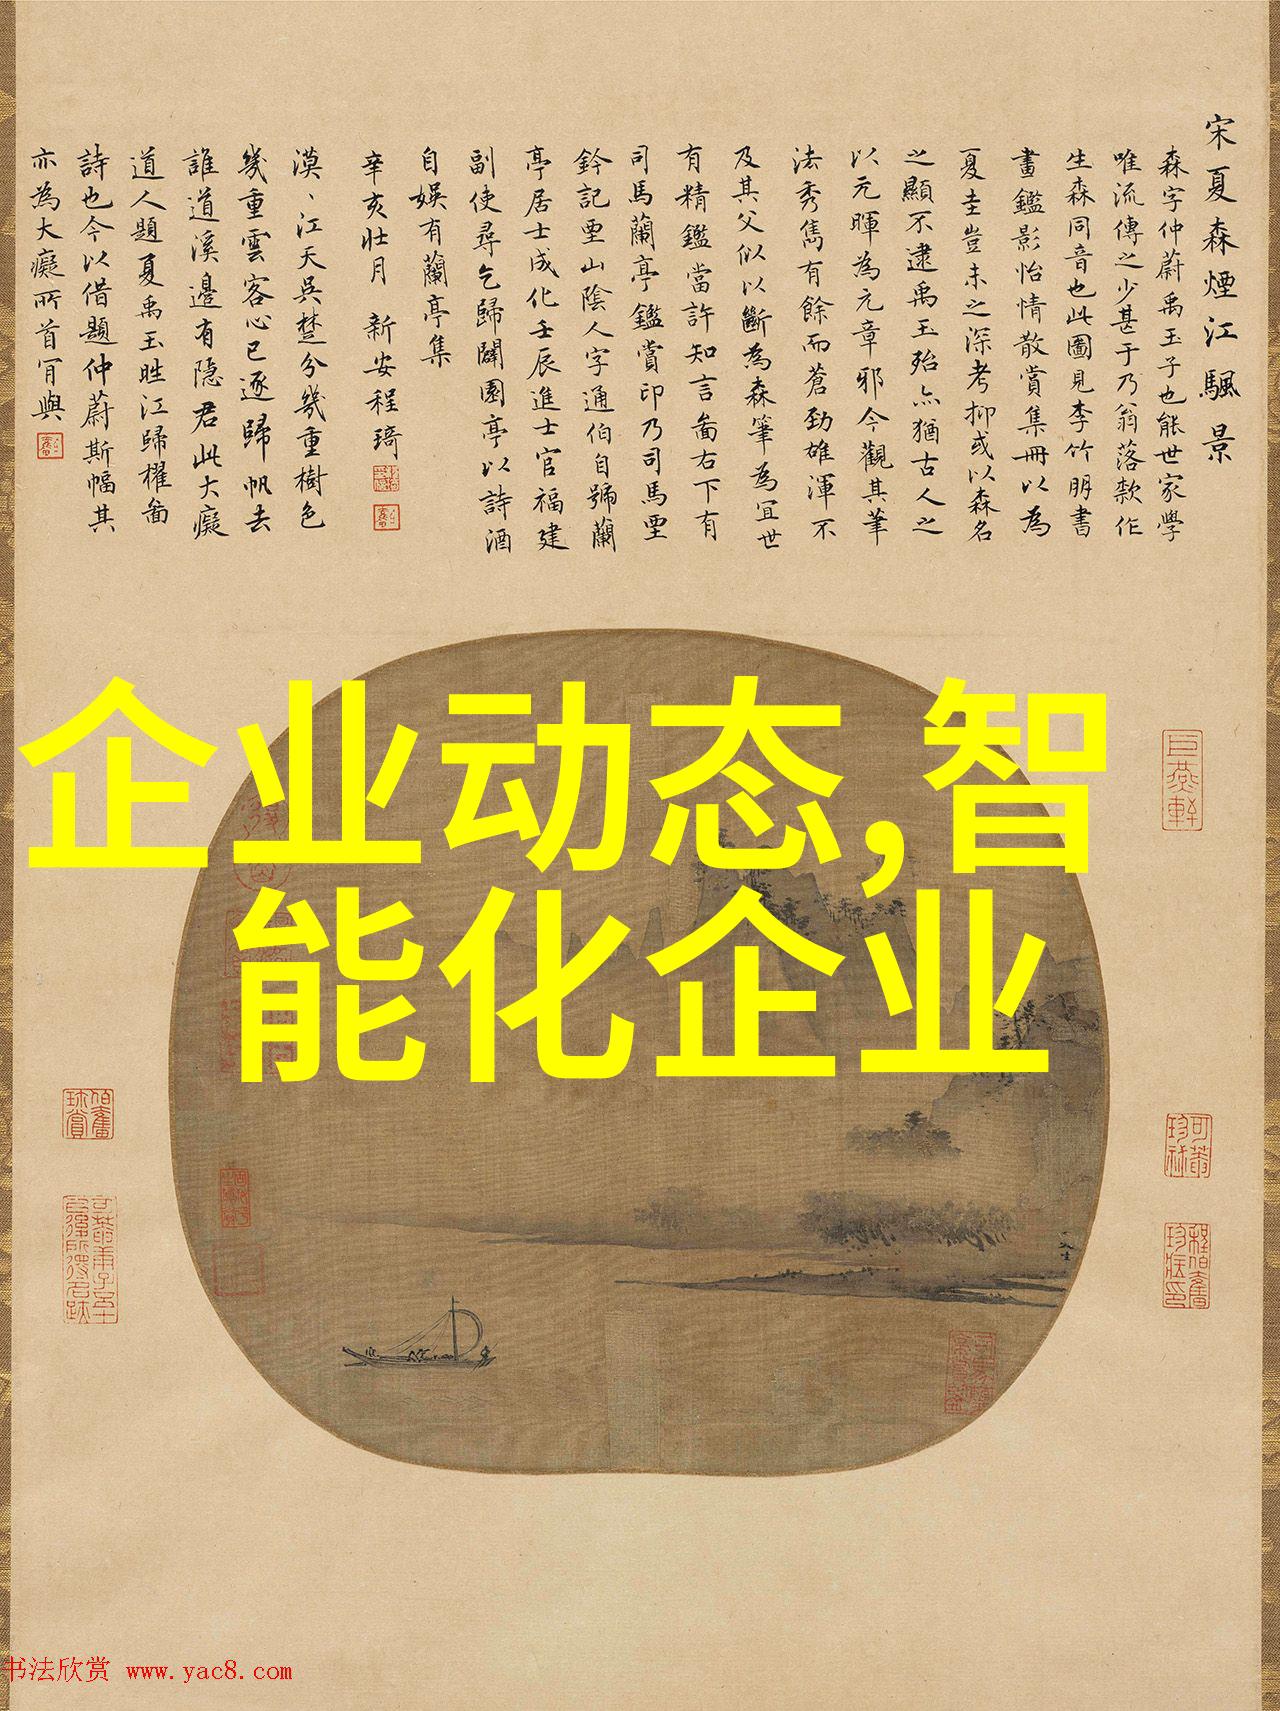 宋夏森煙江颿景
森字仲蔚禹玉子也能世家學
唯流傳之少甚于乃翁落款作
生森同音也此圖見李竹朋書
畫鑑影怡情散賞集冊以為
夏圭豈未之深考抑或以森名
之顯不逮禹玉殆亦猶古人之
以元暉為元章邪今觀其筆
法秀雋有餘而蒼勁雄渾不
及其父似以斷為森筆為宜世
有精鑑當許知言畣右下有
司馬蘭亭鑑賞印乃司馬垔
鈐記垔山陰人字通伯自號蘭
亭居士成化壬辰進士官福建
副使尋乞歸闢園亭以詩酒
自娛有蘭亭集
辛亥壯月 新安程琦
漠、江天吳楚分幾重樹色
幾重雲客心已逐歸帆去
誰道溪邊有隱君此大癡
道人題夏禹玉晴江歸櫂畣
詩也今以借題仲蔚斯幅其
亦為大癡所首肎與
企业动态,智
能化企业
书法欣赏 www.yac8.com